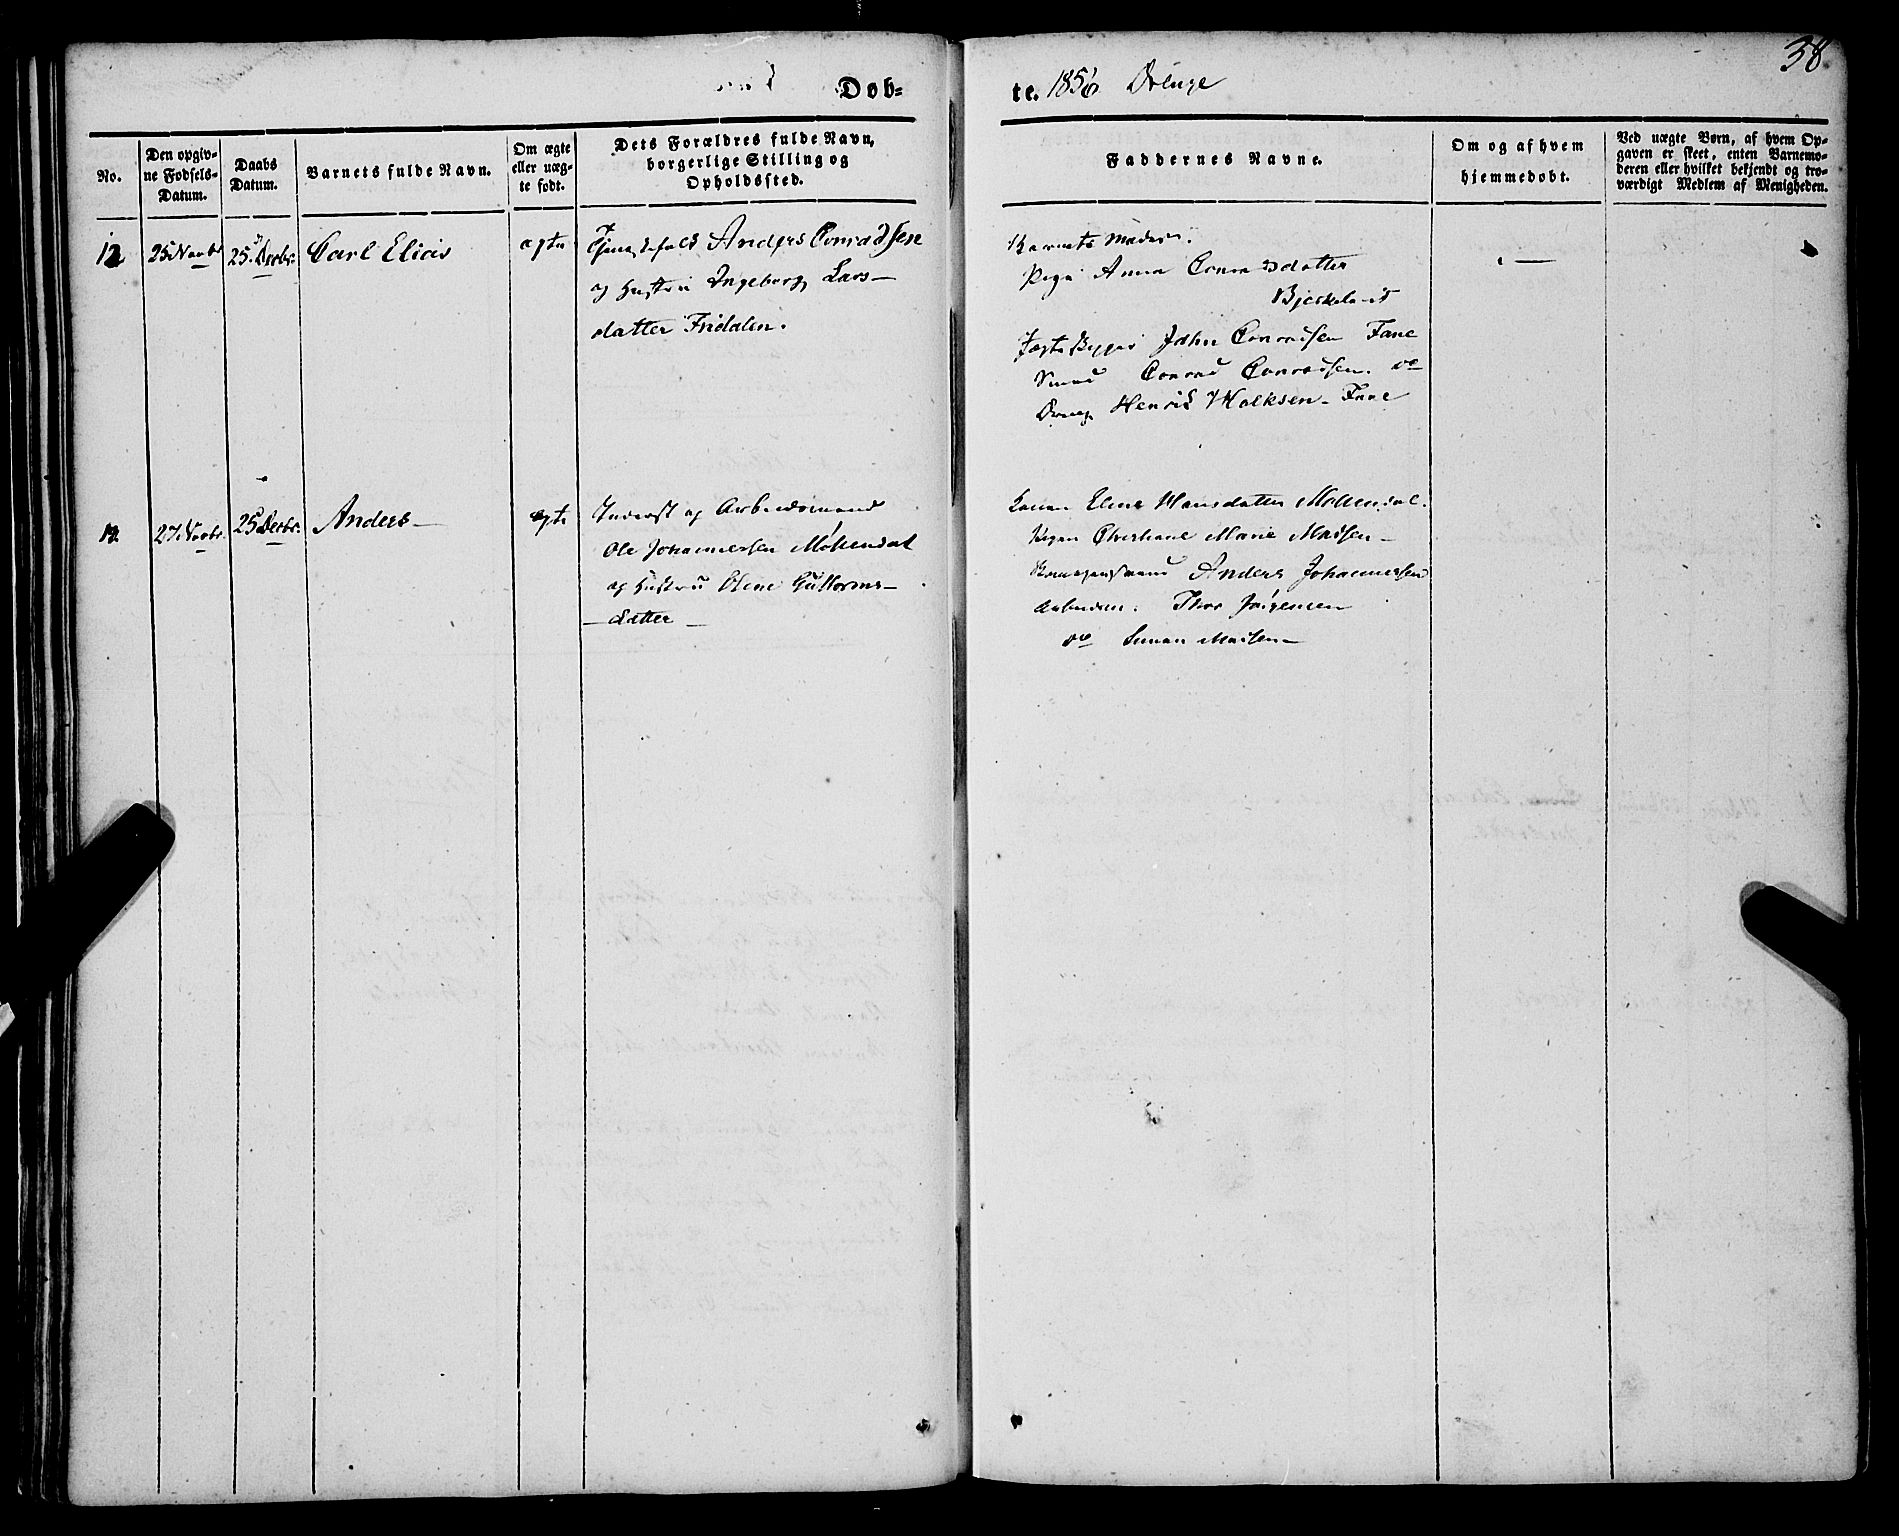 38
Døb-
te. 1856 Drenge
No.
Den opgiv-
ne Fødsels-
Datum.
Daabs
Datum.
Barnets fulde Navn.
Om ægte
eller uæg-
te født.
Dets Forældres fulde Navn,
borgerlige Stilling og
Opholdssted.
Faddernes Navne.
Om og af hvem
hjemmedøbt.
Ved uægte Børn, af hvem Op-
gaven er skeet, enten Barnemo-
deren eller hvilket bekjendt og tro-
værdigt Medlem af Menigheden.
12
25 Novbr
25 Decbr.
Carl Elias
ægte
Anders Conradsen
og Hustru Ingeborg Lars-
datter Fridalen.
Barnets Moder.
Pige Anna Conradsdatter
Jægtebygger John Conradsen Fane
Smed Conrad Conradsen. do
Dreng Henrik Falksen - Fane
27 Novbr.
25 Decbr.
Anders
ægte
Inderst og Arbeidsmand
Ole Johannessen Møllendal
og Hustru Olene Guttorms-
datter
Konen Elene Hansdatter Møllendal.
Pigen Marie Madsen
Anders Johannessen
Thor Jørgensen
do Madsen